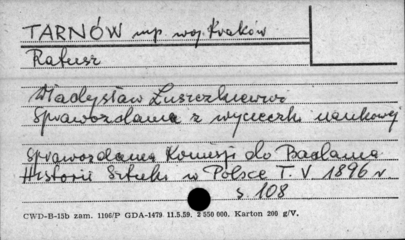 TARNÓW mp. woj. Kraków
Ratusz
Władysław Łuszczkiewicz
Sprawozdania z wycieczki naukowej
Sprawozdania Komisji do Badania
Historii Sztuki w Polsce T. V 1896 r
s. 108
CWD-B-15b zam. 1106/P GDA-1479 11.5.59. 2 550 000. Karton 200 g/V.